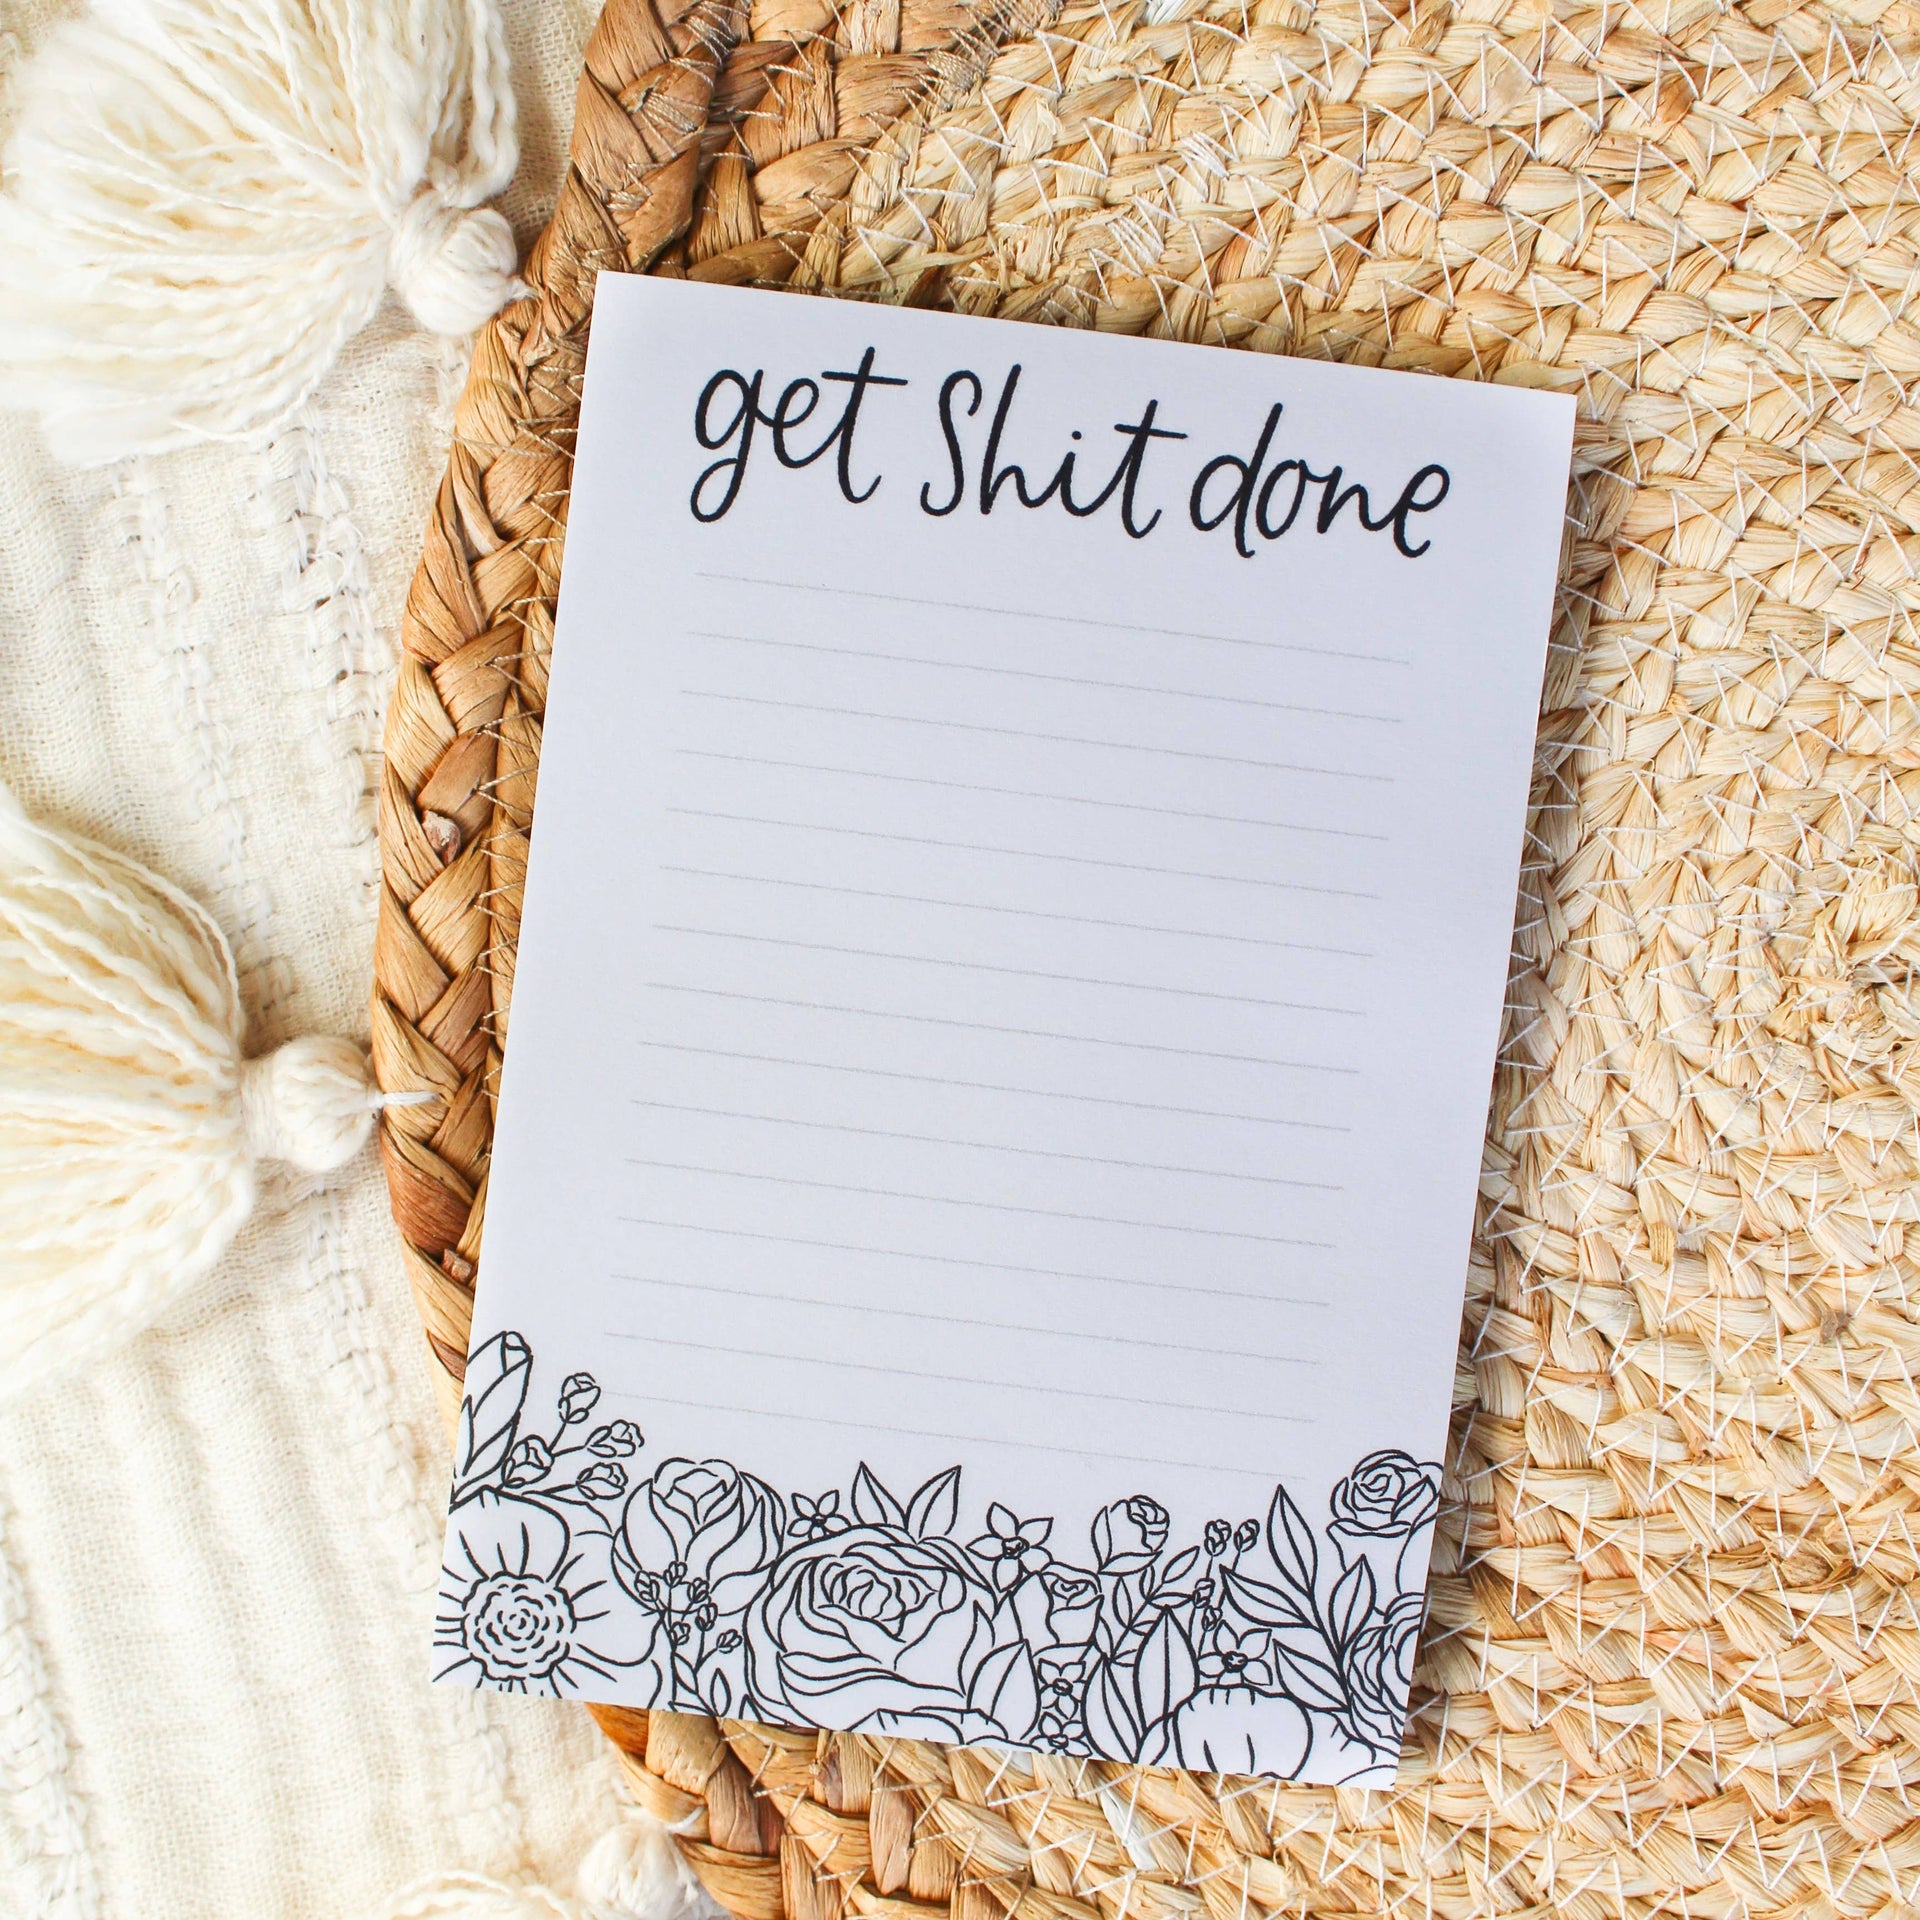 get shit done